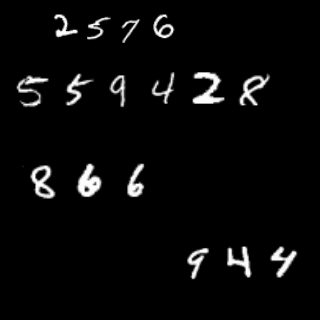 2576
559428
866
944